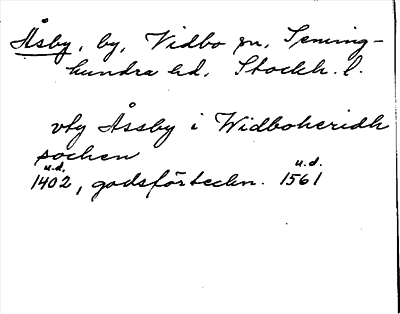 Åsby, by, Vidbo sn, Seming-
hundra hd, Stockh. l.
vtg Åssby i Widboheridh
sochen
u.d.
1402, godsförteckn. 1561
u.d.